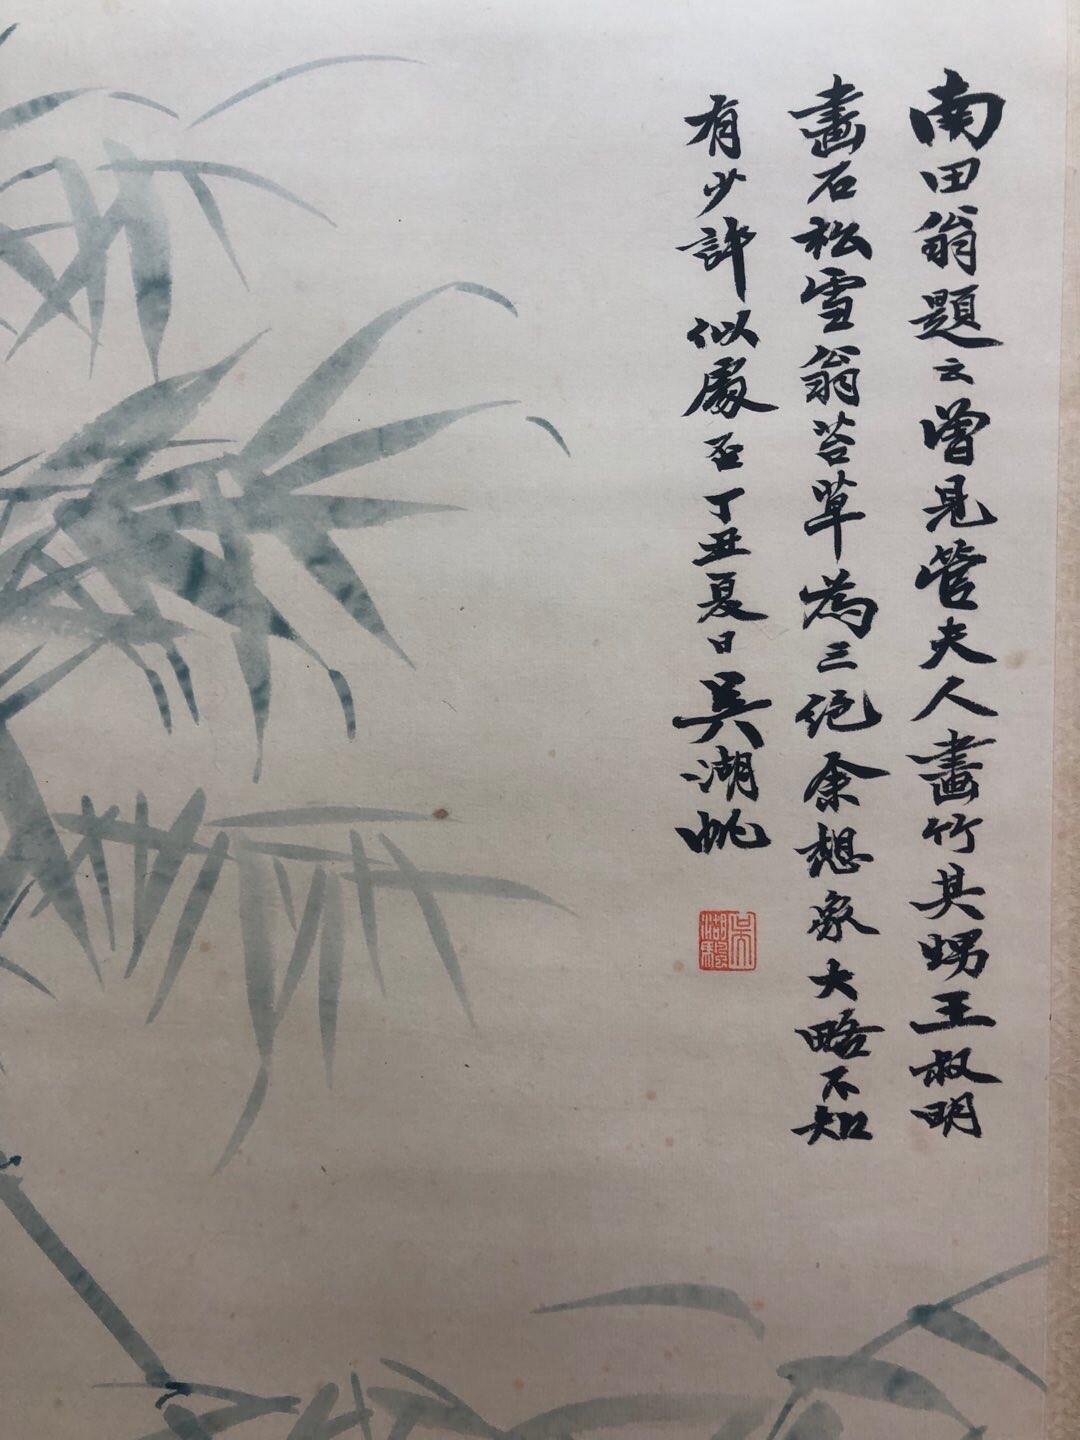 南田翁題云曾見管夫人畫竹其甥王叔明
畫石松雪翁苔草為三絕余想象大略不知
有少許似處否丁丑夏日吳湖帆
吳湖颿